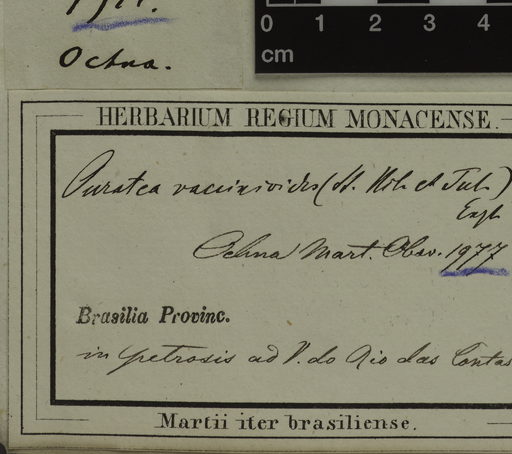 1977.
Ochna.
0 1 2 3 4
cm
HERBARIUM REGIUM MONACENSE.
Ouratea vaccinioides (St. Hil. et Tul.)
Engl.
Ochna Mart. Obsv. 1977
Brasilia Provinc.
in petrosis ad V. do Rio das Contas
Martii iter brasiliense.